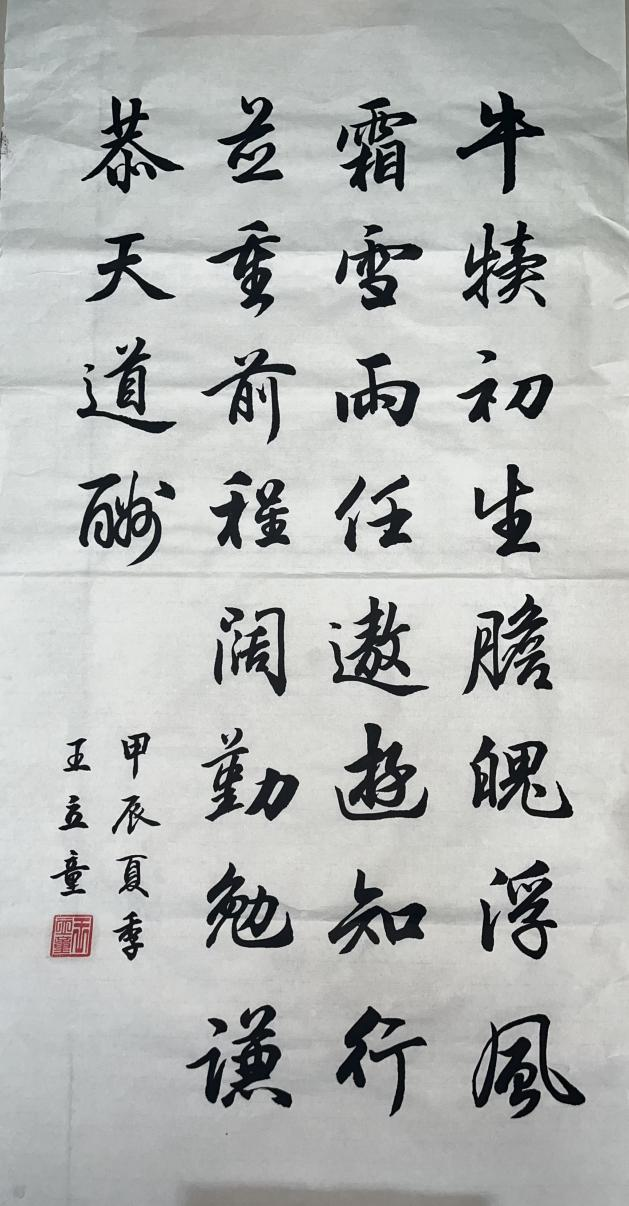 牛犊初生膽魄浮風
霜雪雨任遨遊知行
並重前程阔勤勉謙
恭天道酬
甲辰夏季
王立童
王立童